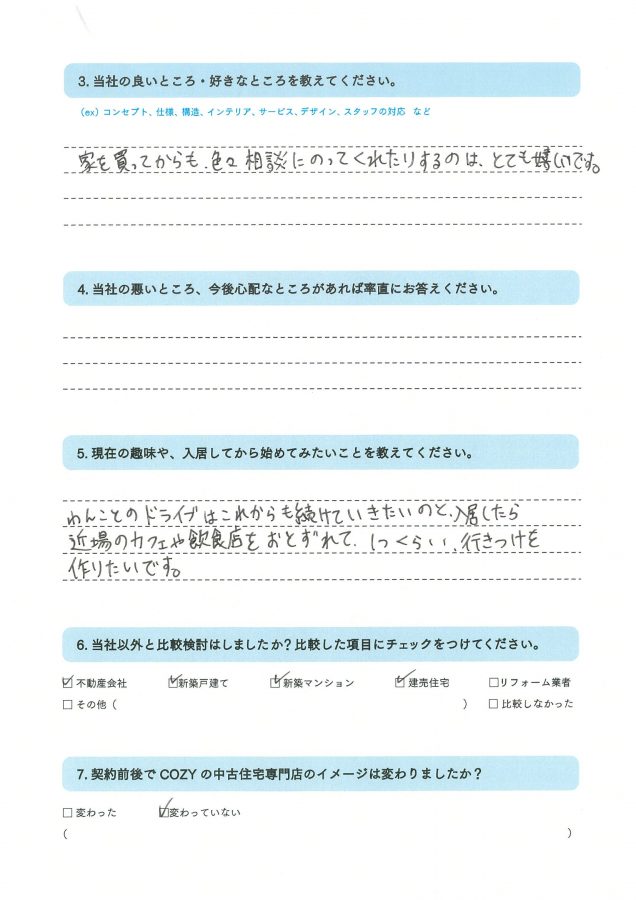 3. 当社の良いところ・好きなところを教えてください。
（ex）コンセプト、仕様、構造、インテリア、サービス、デザイン、スタッフの対応 など
家を買ってからも、色々相談にのってくれたりするのは、とても嬉しいです。
4. 当社の悪いところ、今後心配なところがあれば率直にお答えください。
5. 現在の趣味や、入居してから始めてみたいことを教えてください。
わんことのドライブはこれからも続けていきたいのと、入居したら
近場のカフェや飲食店をおとずれて、1つくらい、行きつけを
作りたいです。
6. 当社以外と比較検討はしましたか？比較した項目にチェックをつけてください。
☑ 不動産会社 ☑ 新築戸建て ☑ 新築マンション ☑ 建売住宅 □ リフォーム業者
□ その他（ ） □ 比較しなかった
7. 契約前後で COZY の中古住宅専門店のイメージは変わりましたか？
□ 変わった ☑ 変わっていない
（ ）